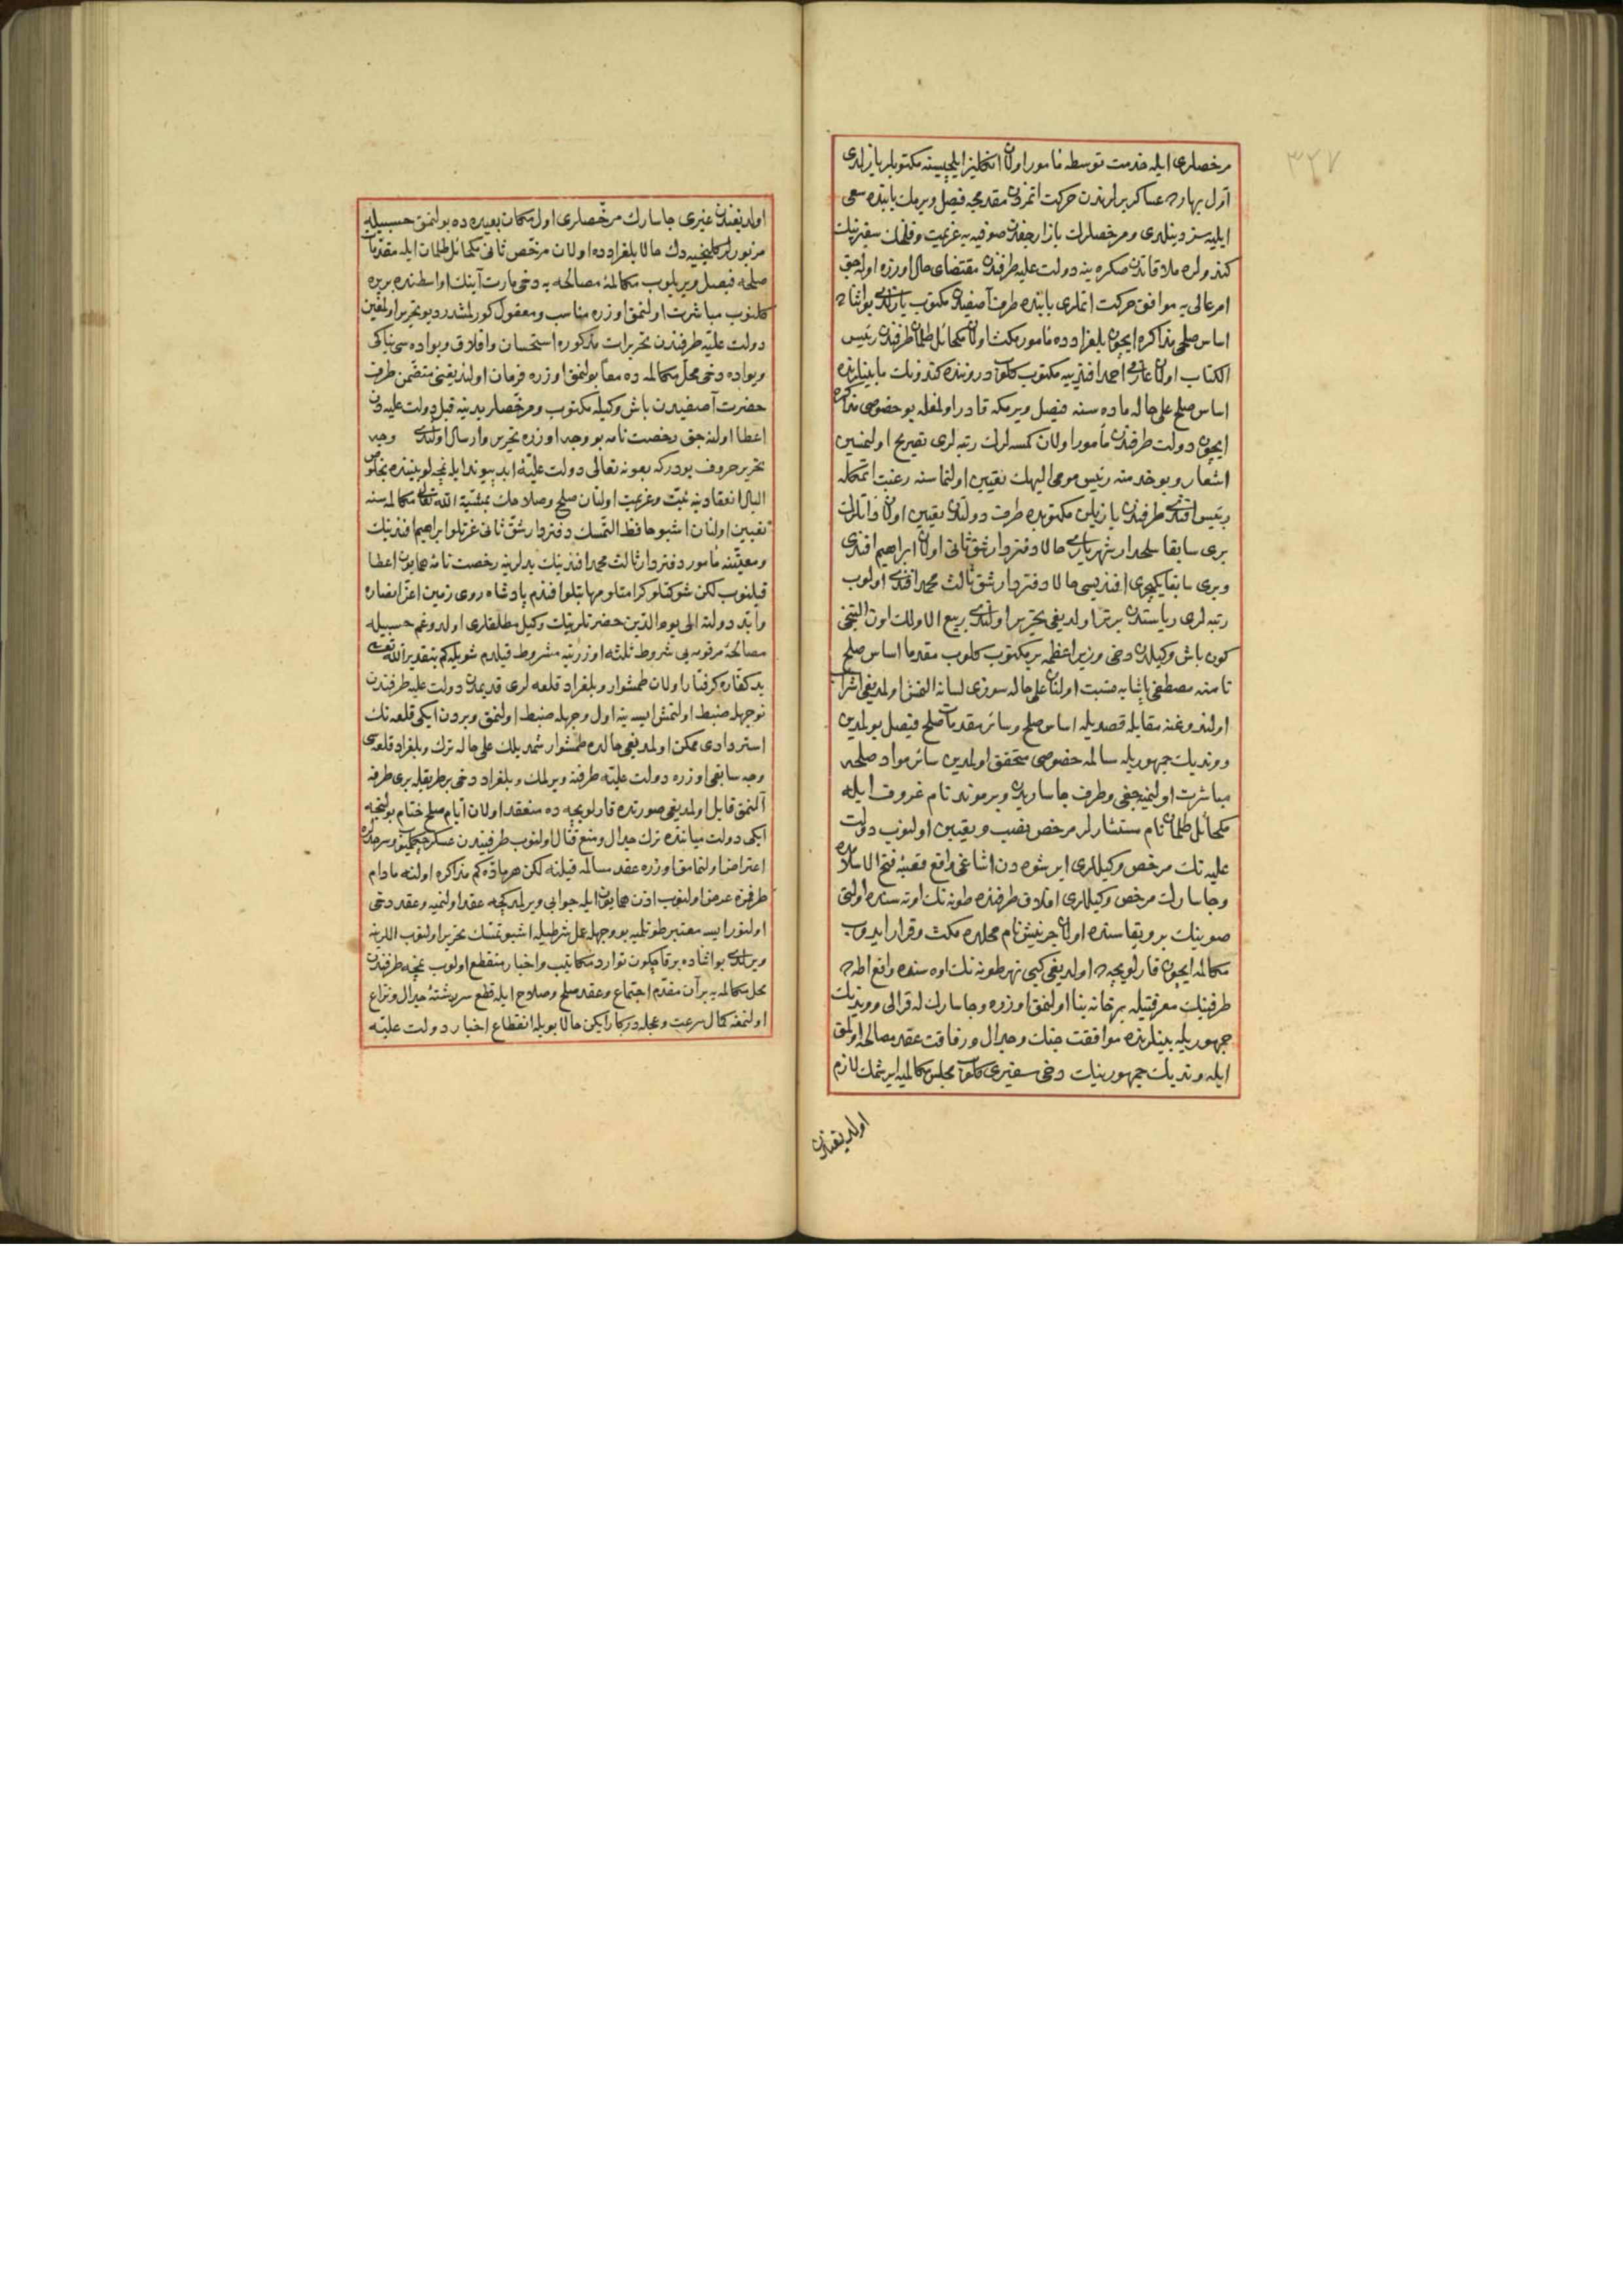 ٣٢٧
مرخصلرى ايله خدمت توسطه مامور اولان انكليز ايلچيسنه مكتوبلر يازلدى
اول بهارده عساكر يرلرندن حركت اتمزدن مقدمجه فيصل ويرمك بابنده سعى
ايليه سز دينلدى و مرخصلرك بازارجقدن صوفيه يه عزيمت و فلمان سفيرينك
كندولره ملاقاتدن صكره ينه دولت عليه طرفندن مقتضاى حال اوزره اوله جق
امر عالى يه موافق حركت اتملرى بابنده طرف آصفيدن مكتوب يازلدى بو اثناده
اساس صلحى مذاكره ايچون بلغرادده مامور مكث اولان مكائل طلمان طرفندن رئيس
الكتاب اولان عارفى احمد افندييه مكتوب كلوب دروننده كندونك مابينلرنده
اساس صلح على حاله ماده سنه فيصل ويرمكه قادر اولمغله بو خصوصى مذاكره
ايچون دولت طرفندن مأمور اولان كمسه لرك رتبه لرى تصريح اولنمسين
اشعار و بو خدمته رئيس مومى اليهك تعيين اولنماسنه رغبت اتمكله
رئيس افندى طرفندن يازيلن مكتوبده طرف دولتدن تعيين اولنان ذاتلرك
برى سابقا سلحدار شهريارى حالا دفتردار شق ثانى اولان ابراهيم افندى
و برى سابقا يكيچرى افنديسى حالا دفتردار شق ثالث محمد افندى اولوب
رتبه لرى رياستدن برتر اولديغى تحرير اولندى ربيع الاولك اون التنجى
كون باش وكيلدن دخى وزير اعظمه بر مكتوب كلوب مقدما اساس صلح
نامنه مصطفى پاشايه مثبت اولنان على حاله سوزى لسانه النمش اولمديغى اشراب
اولندوغنه مقابله قصديله اساس صلح و سائر مقدمات صلح فيصل بولمدين
و ونديك جمهوريله سالمه خصوصى متحقق اولمدين سائر مواد صلحه
مباشرت اولنميه جغى و طرف جاساريدن ويرموند نام غروف ايله
مكائل طلمان نام مستشارلر مرخص نصب و تعيين اولنوب دولت
عليه نك مرخص وكيللرى ايرشوه دن اشاغى واقع قصبه فتح الاسلامده
و جاسارك مرخص وكيللرى افلاق طرفنده طونه نك اوته سنده اولتى
صوينك بر و يقاسنده اولان چرنيش نام محلده مكث و قرار ايدوب
مكالمه ايچون قارلويچه ده اولديغى كبى نهر طونه نك اوه سنده واقع اطه ده
طرفينك معرفتيله بر خانه بنا اولنمق اوزره و جاسارك له قرالى و ونديك
جمهوريله بينلرنده موافقت جنك و جدال و رفاقت عقد مصالحه اولمق
ايله ونديك جمهورينك دخى سفيرى كلوب مجلس مكالميه ايرشمك لازم
اولديغندن
اولديغندن غيرى جاسارك مرخصلرى اول مكان بعيده ده بولنمق حسبيله
مزبورلر كلنجيه دك حالا بلغرادده اولان مرخص ثانى مكائل طلمان ايله مقدمات
صلحه فيصل ويريلوب مكالمه مصالحه يه دخى مارت آينك اواسطنده بريره
كلنوب مباشرت اولنمق اوزره مناسب و معقول كورلمشدر ديو تحرير اولمغين
دولت عليه طرفندن تحريرات مذكوره استحسان و افلاق ويواده سى نيقولاكى
ويواده دخى محل مكالمه ده معا بولنمق اوزره فرمان اولنديغنى متضمن طرف
حضرت آصفيدن باش وكيله مكتوب و مرخصلر يدينه قبل دولت عليه دن
اعطا اولنه جق رخصت نامه بو وجه اوزره تحرير و ارسال اولندى وجه
تحرير حروف بودركه بعونه تعالى دولت عليه ابد پيوند ايله نمچه لو بيننده بخلوص
البال انعقادينه نيت و عزيمت اولنان صلح و صلاحك بمشيه الله تعالى مكالمه سنه
تعيين اولنان اشبو حافظ التمسك دفتردار شق ثانى عزتلو ابراهيم افندينك
و معيتنه مأمور دفتردار ثالث محمد افندينك يدلرينه رخصت نامه همايون اعطا
قيلنوب لكن شوكتلو كرامتلو مهابتلو افندم پادشاه روى زمين اعز انصاره
و ابد دولته الى يوم الدين حضرتلرينك وكيل مطلقلرى اولدوغم حسبيله
مصالحه مرقومه يى شروط ثلثه اوزرينه مشروط قيلدم شويله كم بتقدير الله تعالى
يد كفاره كرفتار اولان طمشوار و بلغراد قلعه لرى قديمدن دولت عليه طرفندن
نوجهله ضبط اولنمش ايسه ينه اول وجهله ضبط اولنمق و بردن ايكى قلعه نك
استردادى ممكن اولمديغى حالده طمشوار شمديلك على حاله ترك و بلغراد قلعه سى
وجه سابقى اوزره دولت عليه طرفنه ويرلمك و بلغراد دخى بر طريقله برى طرفه
آلنمق قابل اولمديغى صورتده قارلويچه ده منعقد اولان ايام صلح ختام بولنجه
ايكى دولت مياننده ترك جدال و منع قتال اولنوب طرفيندن عسكر چكيلوب و سرحدلره
اعتراض اولنمامق اوزره عقد مسالمه قيلنه لكن هر ماده كم مذاكره اولنه مادام
طرفمزه عرض اولنوب اذن همايون ايله جوابى ويرلمدكجه عقد اولنميه و عقد دخى
اولنور ايسه معتبر طوتلميه بو وجهله عمل شرطيله اشبو تمسك تحرير اولنوب اللرينه
ويرلدى بو اثناده برقاچ كون توارد مكاتيب و اخبار منقطع اولوب نمچه طرفندن
محل مكالمه يه بر آن مقدم اجتماع و عقد صلح و صلاح ايله قطع سررشته جدال و نزاع
اولنمغه كمال سرعت و عجله دركار ايكن حالا بويله انقطاع اخبار دولت عليه